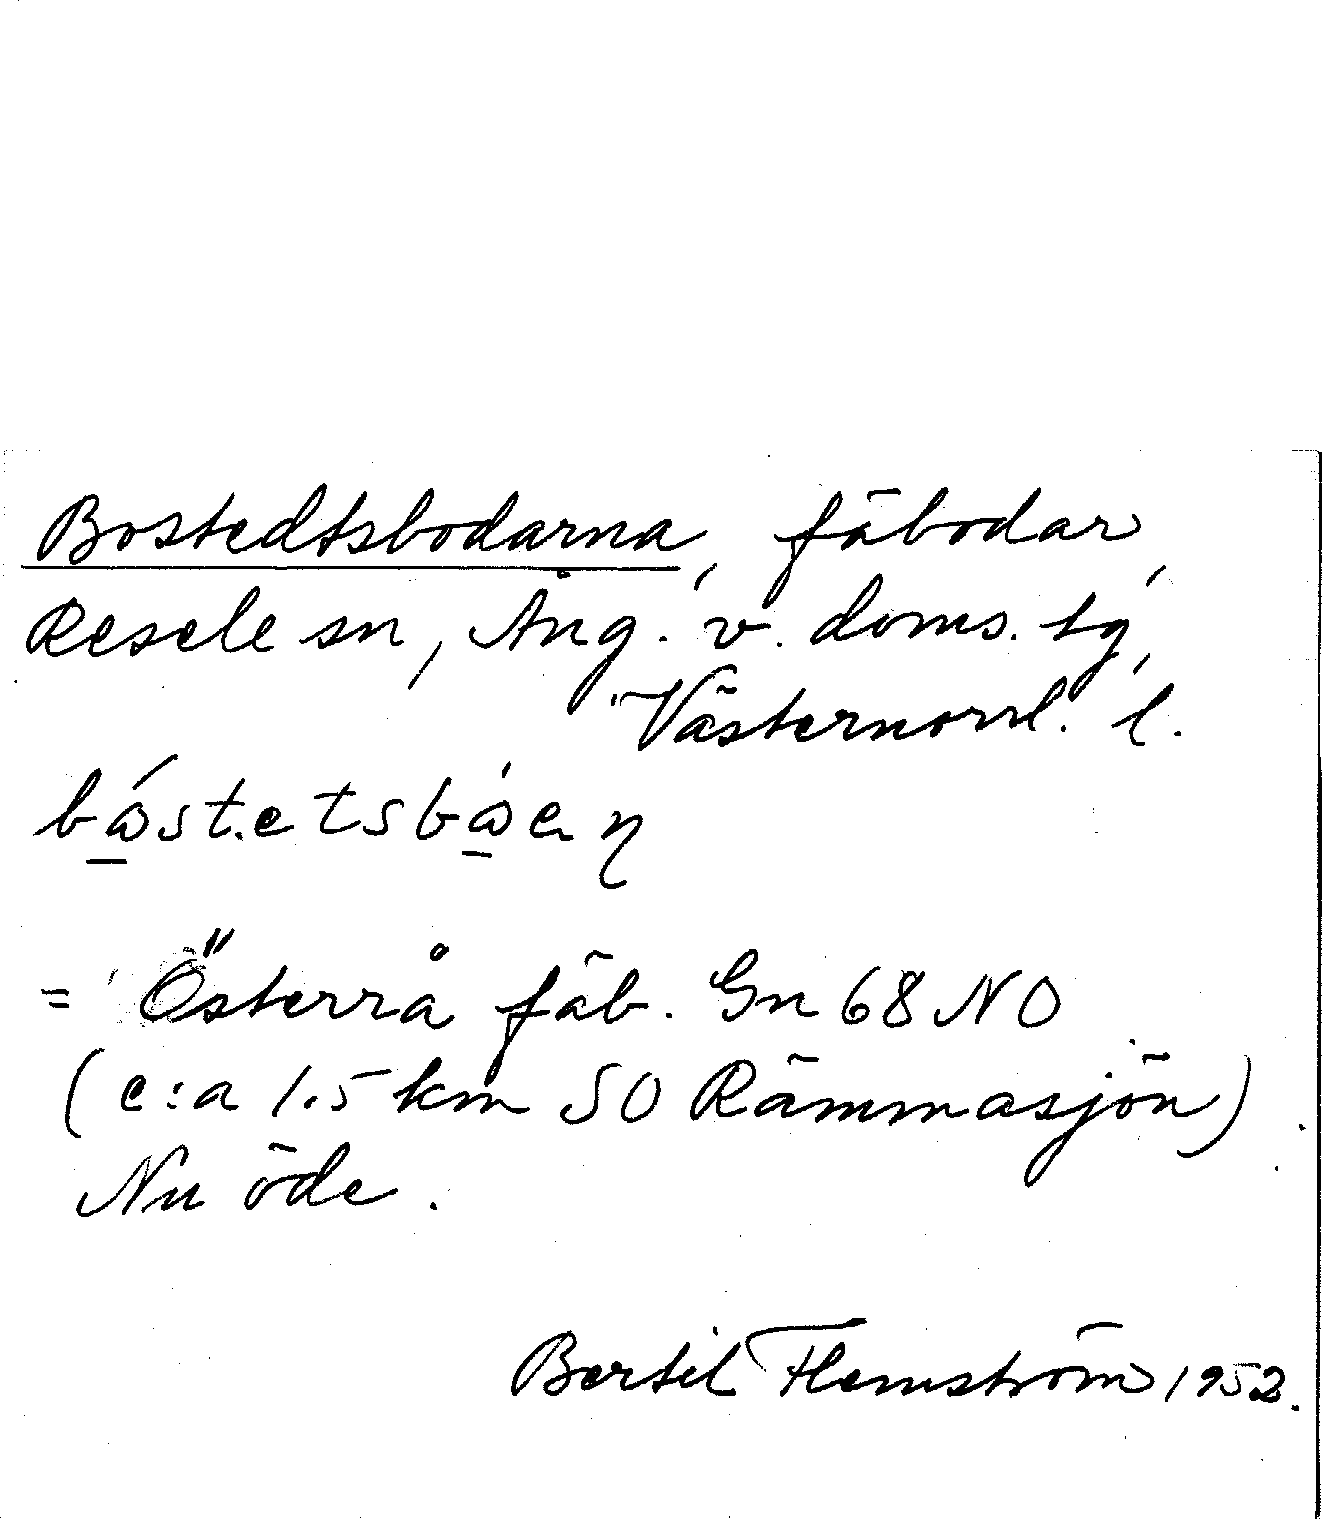 Bostedtsbodarna, fäbodar,
Resele sn, Ång. v. doms. tg,
Västernorrl. l.
= Österrå fäb. Gn 68 NO
(c:a 1.5 km SO Rämmasjön)
Nu öde.
Bertil Flemström 1952.